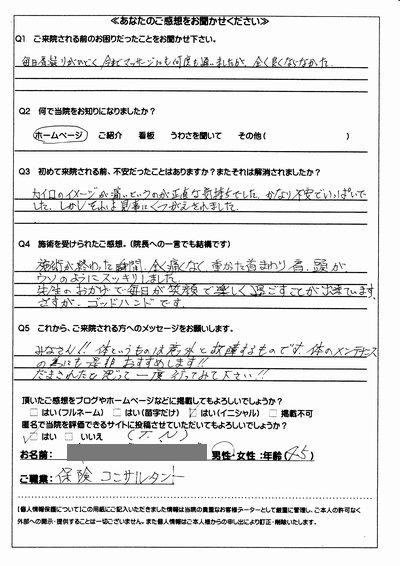 ≪あなたのご感想をお聞かせください≫
Q1 ご来院される前のお困りだったことをお聞かせ下さい。
毎日肩凝りがひどく、今までマッサージにも何度も通いましたが、全く良くならなかった。
Q2 何で当院をお知りになりましたか?
ホームページ ご紹介 看板 うわさを聞いて その他( )
Q3 初めて来院される前、不安だったことはありますか?またそれは解消されましたか?
カイロのイメージが痛いというのが正直な気持ちでした。かなり不安でいっぱいで
した。しかしそれは見事にくつがえされました。
Q4 施術を受けられたご感想。(院長への一言でも結構です)
施術が終わった瞬間、全く痛くなく、重かった首まわり、肩、頭が
ウソのようにスッキリしました。
先生のおかげで毎日が笑顔で楽しく過ごすことが出来ています。
さすが、ゴッドハンドです。
Q5 これから、ご来院される方へのメッセージをお願いします。
みなさん!!体というものは意外と故障するものです。体のメンテナンス
の為にも是非おすすめします!!
だまされたと思って一度行ってみて下さい!!
頂いたご感想をブログやホームページなどに掲載してもよろしいでしょうか?
□はい(フルネーム) □はい(苗字だけ) □はい(イニシャル) □掲載不可
匿名で当院を評価できるサイトに投稿させていただいてもよろしいでしょうか?
□はい □いいえ (T.N)
お名前: 男性・女性:年齢(45)
ご職業: 保険コンサルタント
【個人情報保護について】この用紙にご記入いただきました情報は当院の貴重なお客様データーとして厳重に管理し、ご本人の許可なく
外部への開示・提供することは一切ございません。また個人情報はご本人様からの申し出により訂正・削除いたします。